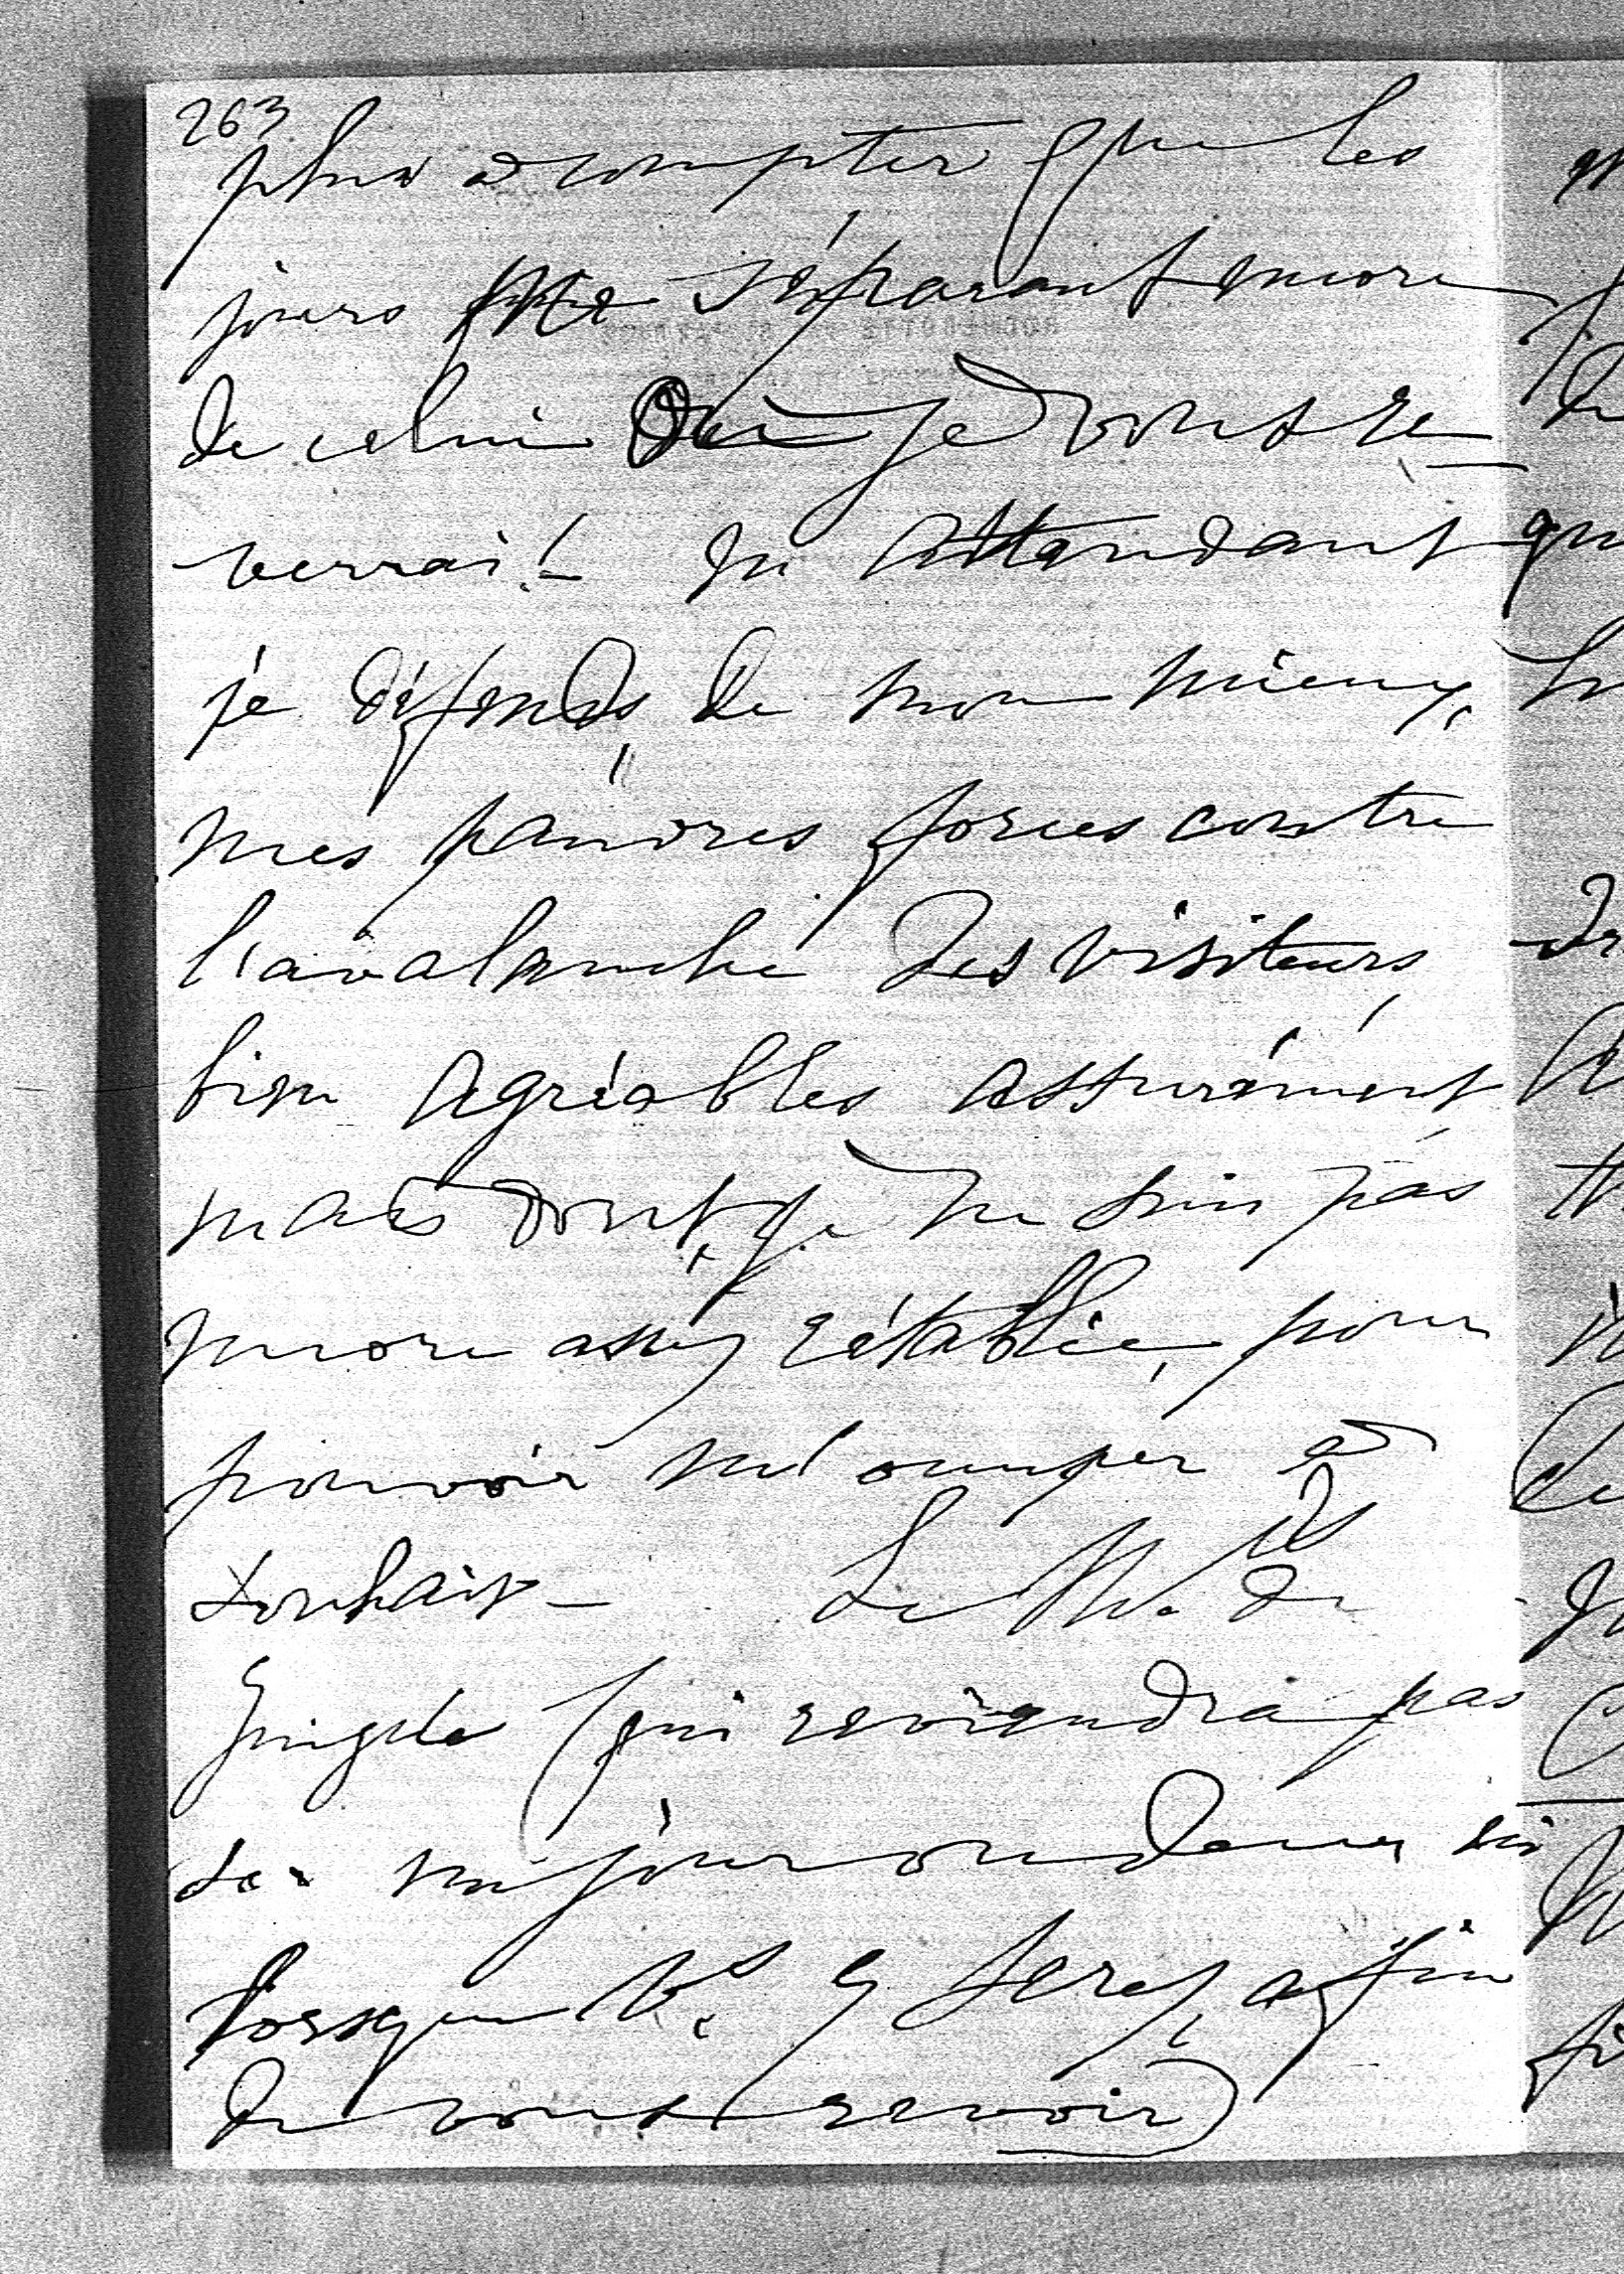 263
plus à compter que les
jours me séparant encore
de celui où je vous re-
verrai! En attendant
je défends, de mon mieux,
mes pauvres forces contre
l'avalanche des visiteurs
bien agréables assurément
mais dont, je ne suis pas
encore assez rétablie, pour
pouvoir m'occuper à
souhait – Le Ms de
(qui reviendra pas
ser un jour ou deux ici
lorsque Vs y serez, afin
de vous revoir)